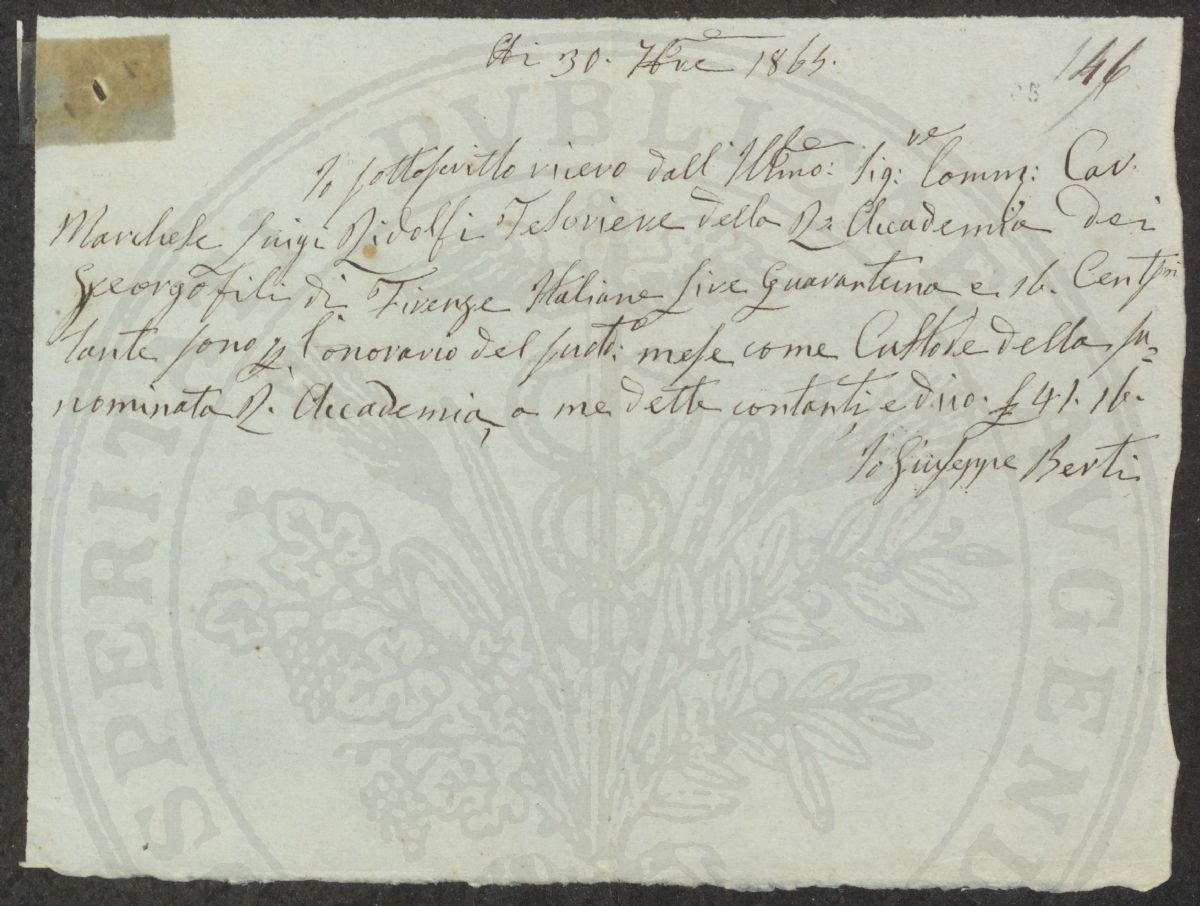 Adi 30. 7bre 1865.
146
Io sottoscritto ricevo dall'Illmo: Sig:re Comm: Cav.
Marchese Luigi Ridolfi Tesoriere della Ra Accademia dei
Georgofili di Firenze Italiane Lire Quarantuna e 16. Centmi
tante sono p l'onorario del sudto: mese come Custode della su=
nominata R. Accademia, a me dette contanti, e dico. £ 41. 16.
Io Giuseppe Berti
PROSPERITATI PUBLICAE AUGENDAE